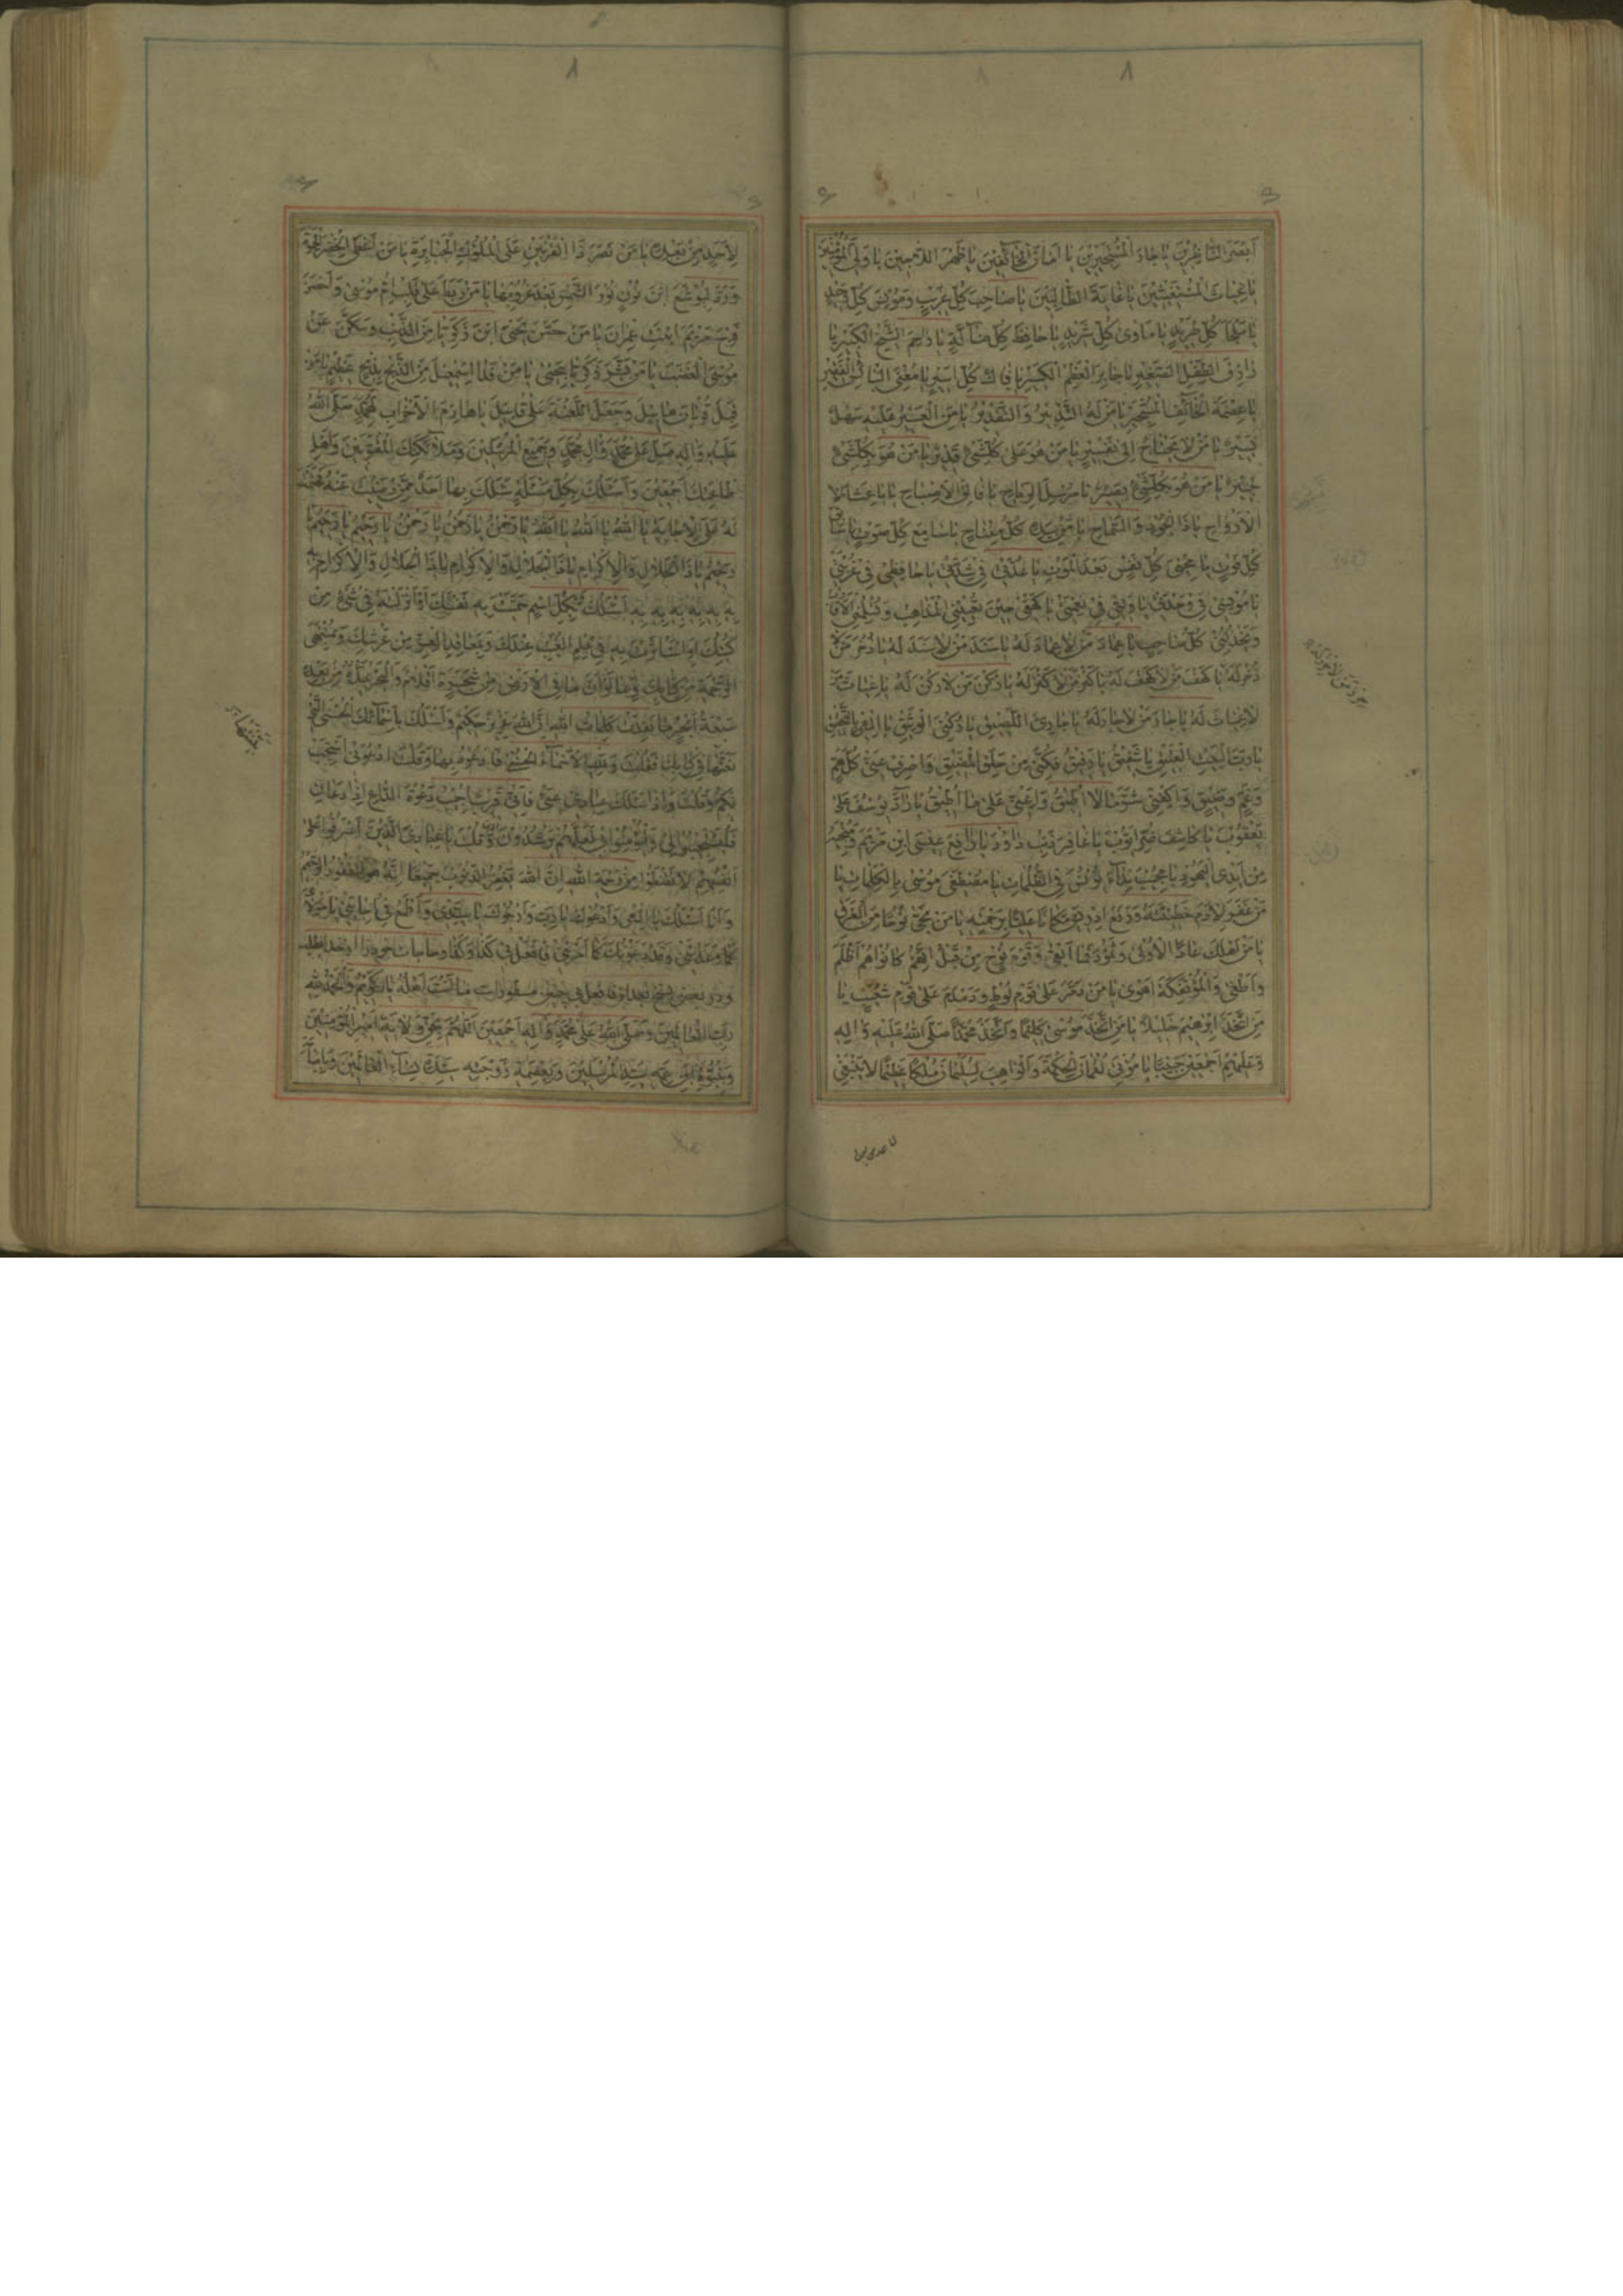 أَبْصَرَ النَّاظِرِينَ يَا جَارَ الْمُسْتَجِيرِينَ يَا أَمَانَ الْخَائِفِينَ يَا ظَهْرَ اللَّاجِينَ يَا وَلِيَّ الْمُؤْمِنِينَ
يَا غِيَاثَ الْمُسْتَغِيثِينَ يَا غَايَةَ الطَّالِبِينَ يَا صَاحِبَ كُلِّ غَرِيبٍ وَمُونِسَ كُلِّ وَحِيدٍ
يَا مَلْجَأَ كُلِّ طَرِيدٍ يَا مَأْوَى كُلِّ شَرِيدٍ يَا حَافِظَ كُلِّ ضَالَّةٍ يَا رَاحِمَ الشَّيْخِ الْكَبِيرِ يَا
رَازِقَ الطِّفْلِ الصَّغِيرِ يَا جَابِرَ الْعَظْمِ الْكَسِيرِ يَا فَاكَّ كُلِّ أَسِيرٍ يَا مُغْنِيَ الْبَائِسِ الْفَقِيرِ
يَا عِصْمَةَ الْخَائِفِ الْمُسْتَجِيرِ يَا مَنْ لَهُ التَّدْبِيرُ وَالتَّقْدِيرُ يَا مَنِ الْعَسِيرُ عَلَيْهِ سَهْلٌ
يَسِيرٌ يَا مَنْ لَا يَحْتَاجُ إِلَى تَفْسِيرٍ يَا مَنْ هُوَ عَلَى كُلِّ شَيْءٍ قَدِيرٌ يَا مَنْ هُوَ بِكُلِّ شَيْءٍ
خَبِيرٌ يَا مَنْ هُوَ بِكُلِّ شَيْءٍ بَصِيرٌ يَا مُرْسِلَ الرِّيَاحِ يَا فَالِقَ الْإِصْبَاحِ يَا بَاعِثَ
الْأَرْوَاحِ يَا ذَا الْجُودِ وَالسَّمَاحِ يَا مَنْ بِيَدِهِ كُلُّ مِفْتَاحٍ يَا سَامِعَ كُلِّ صَوْتٍ يَا سَابِقَ
كُلِّ فَوْتٍ يَا مُحْيِيَ كُلِّ نَفْسٍ بَعْدَ الْمَوْتِ يَا عُدَّتِي فِي شِدَّتِي يَا حَافِظِي فِي غُرْبَتِي
يَا مُونِسِي فِي وَحْدَتِي يَا وَلِيِّي فِي نِعْمَتِي يَا كَهْفِي حِينَ تُعْيِينِي الْمَذَاهِبُ وَتُسَلِّمُنِي الْأَقَارِبُ
وَيَخْذُلُنِي كُلُّ صَاحِبٍ يَا عِمَادَ مَنْ لَا عِمَادَ لَهُ يَا سَنَدَ مَنْ لَا سَنَدَ لَهُ يَا ذُخْرَ مَنْ لَا
ذُخْرَ لَهُ يَا كَهْفَ مَنْ لَا كَهْفَ لَهُ يَا كَنْزَ مَنْ لَا كَنْزَ لَهُ يَا رُكْنَ مَنْ لَا رُكْنَ لَهُ يَا غِيَاثَ مَنْ
لَا غِيَاثَ لَهُ يَا جَارَ مَنْ لَا جَارَ لَهُ يَا جَارِيَ اللَّصِيقَ يَا رُكْنِيَ الْوَثِيقَ يَا إِلَهِي بِالتَّحْقِيقِ
يَا رَبَّ الْبَيْتِ الْعَتِيقِ يَا شَفِيقُ يَا رَفِيقُ فُكَّنِي مِنْ حَلَقِ الْمَضِيقِ وَاصْرِفْ عَنِّي كُلَّ هَمٍّ
وَغَمٍّ وَضِيقٍ وَاكْفِنِي شَرَّ مَا لَا أُطِيقُ وَأَعِنِّي عَلَى مَا أُطِيقُ يَا رَادَّ يُوسُفَ عَلَى
يَعْقُوبَ يَا كَاشِفَ ضُرِّ أَيُّوبَ يَا غَافِرَ ذَنْبِ دَاوُدَ يَا رَافِعَ عِيسَى ابْنِ مَرْيَمَ وَمُنْجِيَهُ
مِنْ أَيْدِي الْيَهُودِ يَا مُجِيبَ نِدَاءِ يُونُسَ فِي الظُّلُمَاتِ يَا مُصْطَفِيَ مُوسَى بِالْكَلِمَاتِ يَا
مَنْ غَفَرَ لِآدَمَ خَطِيئَتَهُ وَرَفَعَ إِدْرِيسَ مَكَانًا عَلِيًّا بِرَحْمَتِهِ يَا مَنْ نَجَّى نُوحًا مِنَ الْغَرَقِ
يَا مَنْ أَهْلَكَ عَادًا الْأُولَى وَثَمُودَ فَمَا أَبْقَى وَقَوْمَ نُوحٍ مِنْ قَبْلُ إِنَّهُمْ كَانُوا هُمْ أَظْلَمَ
وَأَطْغَى وَالْمُؤْتَفِكَةَ أَهْوَى يَا مَنْ دَمَّرَ عَلَى قَوْمِ لُوطٍ وَدَمْدَمَ عَلَى قَوْمِ شُعَيْبٍ يَا
مَنِ اتَّخَذَ إِبْرَهِيمَ خَلِيلًا يَا مَنِ اتَّخَذَ مُوسَى كَلِيمًا وَاتَّخَذَ مُحَمَّدًا صَلَّى اللَّهُ عَلَيْهِ وَآلِهِ
وَعَلَيْهِمْ أَجْمَعِينَ حَبِيبًا يَا مُؤْتِيَ لُقْمَانَ الْحِكْمَةَ وَالْوَاهِبَ لِسُلَيْمَانَ مُلْكًا عَظِيمًا لَا يَنْبَغِي
لِأَحَدٍ مِنْ بَعْدِهِ يَا مَنْ نَصَرَ ذَا الْقَرْنَيْنِ عَلَى الْمُلُوكِ الْجَبَابِرَةِ يَا مَنْ أَعْطَى الْخِضْرَ الْحَيَوةَ
وَرَدَّ لِيُوشَعَ ابْنِ نُونٍ نُورَ الشَّمْسِ بَعْدَ غُرُوبِهَا يَا مَنْ رَبَطَ عَلَى قَلْبِ أُمِّ مُوسَى وَأَحْصَنَ
فَرْجَ مَرْيَمَ ابْنَتِ عِمْرَانَ يَا مَنْ حَصَّنَ يَحْيَى ابْنَ زَكَرِيَّا مِنَ الذَّنْبِ وَسَكَّنَ عَنْ
مُوسَى الْغَضَبَ يَا مَنْ بَشَّرَ زَكَرِيَّا بِيَحْيَى يَا مَنْ فَدَا إِسْمَعِيلَ مِنَ الذَّبْحِ بِذِبْحٍ عَظِيمٍ يَا مَنْ
قَبِلَ قُرْبَانَ هَابِيلَ وَجَعَلَ اللَّعْنَةَ عَلَى قَابِيلَ يَا هَازِمَ الْأَحْزَابِ لِمُحَمَّدٍ صَلَّى اللَّهُ
عَلَيْهِ وَآلِهِ صَلِّ عَلَى مُحَمَّدٍ وَآلِ مُحَمَّدٍ وَجَمِيعِ الْمُرْسَلِينَ وَمَلَائِكَتِكَ الْمُقَرَّبِينَ وَأَهْلِ
طَاعَتِكَ أَجْمَعِينَ وَأَسْئَلُكَ بِكُلِّ مَسْئَلَةٍ سَئَلَكَ بِهَا أَحَدٌ مِمَّنْ رَضِيتَ عَنْهُ فَحَتَمْتَ
لَهُ عَلَى الْإِجَابَةِ يَا اللَّهُ يَا اللَّهُ يَا اللَّهُ يَا رَحْمَنُ يَا رَحْمَنُ يَا رَحْمَنُ يَا رَحِيمُ يَا رَحِيمُ يَا
رَحِيمُ يَا ذَا الْجَلَالِ وَالْإِكْرَامِ يَا ذَا الْجَلَالِ وَالْإِكْرَامِ يَا ذَا الْجَلَالِ وَالْإِكْرَامِ بِهِ
بِهِ بِهِ بِهِ بِهِ بِهِ بِهِ أَسْئَلُكَ بِكُلِّ اسْمٍ سَمَّيْتَ بِهِ نَفْسَكَ أَوْ أَنْزَلْتَهُ فِي شَيْءٍ مِنْ
كُتُبِكَ أَوِ اسْتَأْثَرْتَ بِهِ فِي عِلْمِ الْغَيْبِ عِنْدَكَ وَبِمَعَاقِدِ الْعِزِّ مِنْ عَرْشِكَ وَبِمُنْتَهَى
الرَّحْمَةِ مِنْ كِتَابِكَ وَبِمَا لَوْ أَنَّ مَا فِي الْأَرْضِ مِنْ شَجَرَةٍ أَقْلَامٌ وَالْبَحْرُ يَمُدُّهُ مِنْ بَعْدِهِ
سَبْعَةُ أَبْحُرٍ مَا نَفِدَتْ كَلِمَاتُ اللَّهِ إِنَّ اللَّهَ عَزِيزٌ حَكِيمٌ وَأَسْئَلُكَ بِأَسْمَائِكَ الْحُسْنَى الَّتِي
نَعَتَّهَا فِي كِتَابِكَ فَقُلْتَ وَلِلَّهِ الْأَسْمَاءُ الْحُسْنَى فَادْعُوهُ بِهَا وَقُلْتَ ادْعُونِي أَسْتَجِبْ
لَكُمْ وَقُلْتَ وَإِذَا سَئَلَكَ عِبَادِي عَنِّي فَإِنِّي قَرِيبٌ أُجِيبُ دَعْوَةَ الدَّاعِ إِذَا دَعَانِ
فَلْيَسْتَجِيبُوا لِي وَلْيُؤْمِنُوا بِي لَعَلَّهُمْ يَرْشُدُونَ وَقُلْتَ يَا عِبَادِيَ الَّذِينَ أَسْرَفُوا عَلَى
أَنْفُسِهِمْ لَا تَقْنَطُوا مِنْ رَحْمَةِ اللَّهِ إِنَّ اللَّهَ يَغْفِرُ الذُّنُوبَ جَمِيعًا إِنَّهُ هُوَ الْغَفُورُ الرَّحِيمُ
وَأَنَا أَسْئَلُكَ يَا إِلَهِي وَأَدْعُوكَ يَا رَبِّ وَأَرْجُوكَ يَا سَيِّدِي وَأَطْمَعُ فِي إِجَابَتِي يَا مَوْلَايَ
كَمَا وَعَدْتَنِي وَقَدْ دَعَوْتُكَ كَمَا أَمَرْتَنِي فَافْعَلْ بِي كَذَا وَكَذَا وحاجات خود را از خدا بطلبد
ودر بعضی نسخ بعد از فافعل بی چنین مسطورات مَا أَنْتَ أَهْلُهُ يَا كَرِيمُ وَالْحَمْدُ لِلَّهِ
رَبِّ الْعَالَمِينَ وَصَلَّى اللَّهُ عَلَى مُحَمَّدٍ وَآلِهِ أَجْمَعِينَ اللَّهُمَّ بِحَقِّ وِلَايَةِ أَمِيرِ الْمُؤْمِنِينَ
وَبِنُبُوَّةِ ابْنِ عَمِّهِ سَيِّدِ الْمُرْسَلِينَ وَبِعِصْمَةِ زَوْجَتِهِ سَيِّدَةِ نِسَاءِ الْعَالَمِينَ